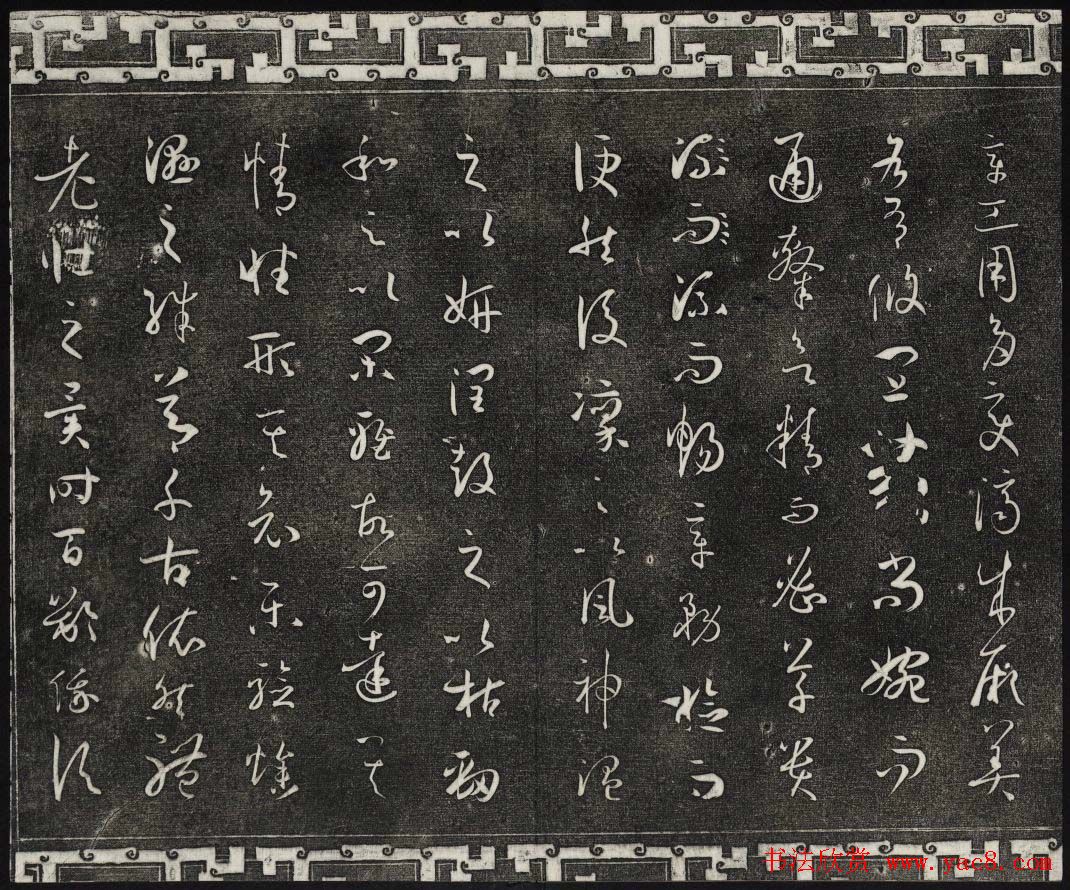 章工用多變濟成厥美
各有攸宜篆尚婉而
通隸欲精而密草貴
流而流而暢章務檢而
便然後凛之以風神温
之以妍潤鼓之以枯勁
和之以閑雅故可達其
情性形其哀樂驗燥
濕之殊節千古依然體
老壯之異時百齡俄頃
书法欣赏 www.yac8.com